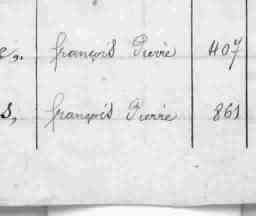 e, françois Pierre 407
s, françois Pierre 861